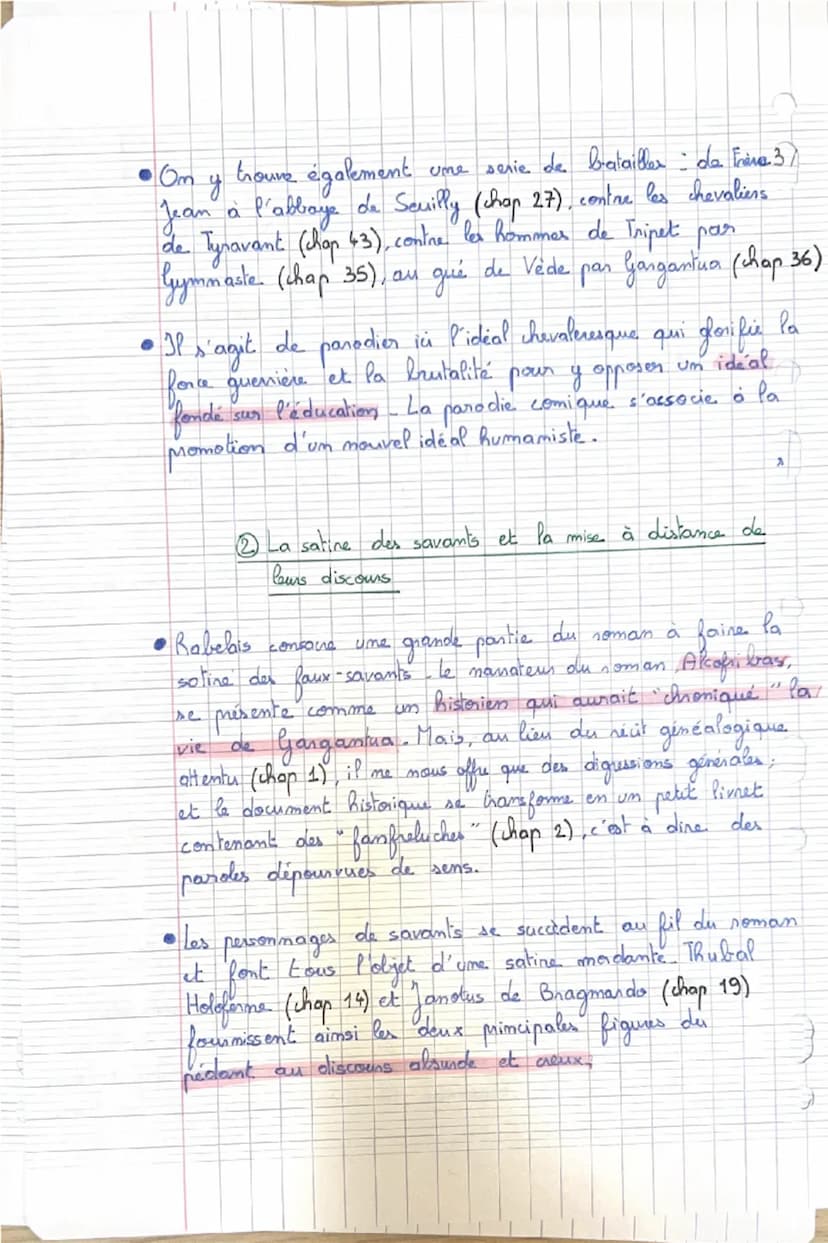 • On y trouve également une serie de batailles : de Frère 3)
Jean à l'abbaye de Seuilly (chap 27), contre les chevaliers
de Tyravant (chap 43), contre les hommes de Tripet par
Gymnaste (chap 35), au gué de Vède par Gargantua (chap 36)
• Il s'agit de parodier ici l'idéal chevaleresque qui glorifie la
force guerrière et la brutalité pour y opposer un idéal
fondé sur l'éducation. La parodie comique s'associe à la
promotion d'un nouvel idéal humaniste.
② La satire des savants et la mise à distance de
leurs discours
• Rabelais consacre une grande partie du roman à faire la
satire des faux-savants. Le narrateur du roman Alcofribas,
se présente comme un historien qui aurait "chroniqué" la
vie de Gargantua. Mais, au lieu du récit généalogique
attentu (chap 1), il ne nous offre que des digressions générales ;
et le document historique se transforme en un petit livret
contenant des "fanfreluches" (chap 2), c'est à dire des
paroles dépourvues de sens.
• Les personnages de savants se succèdent au fil du roman
et font tous l'objet d'une satire mordante. Thubal
Holoferne (chap 14) et Janotus de Bragmardo (chap 19)
fournissent ainsi les deux principales figures du
pédant au discours absurde et creux.